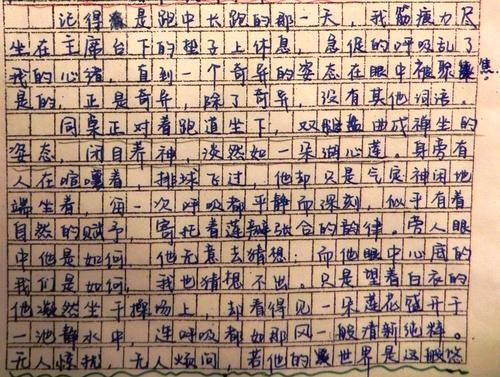 记得是跑中长跑的那一天，我筋疲力尽
坐在主席台下的垫子上休息，急促的呼吸乱了
我的心绪，直到一个奇异的姿态在眼中被聚焦，
是的，正是奇异，除了奇异，没有其他词语。
同桌正对着跑道坐下，双腿盘曲成禅坐的
姿态，闭目养神，淡然如一朵湖心莲。身旁有
人在喧嚷着，排球飞过，他却只是气定神闲地
端坐着，每一次呼吸都平静而深刻，似乎有着
自然的赋予，寄托着莲瓣张合的韵律。旁人眼
中他是如何，他无意去猜想；而他眼中心底的
我们是如何，我也猜想不出。只是望着白衣的
他凝然坐于操场上，却看得见一朵莲花盛开于
一池静水中，连呼吸都如那风一般清新纯粹。
无人惊扰，无人烦问，若他的世界是这般悠